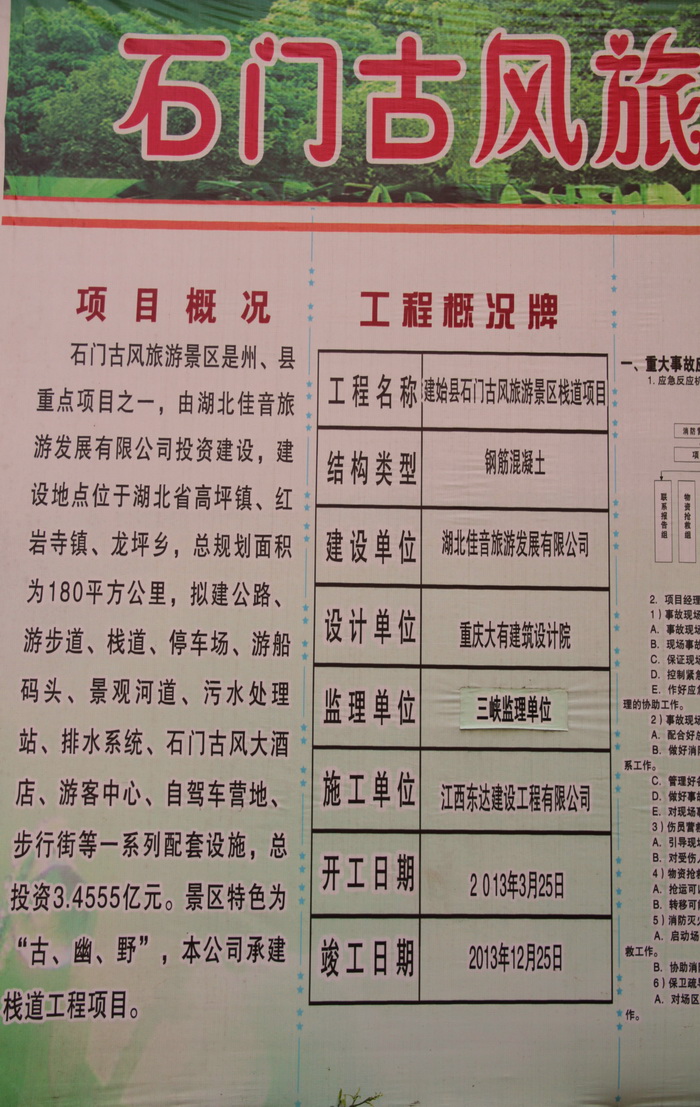 石门古风旅
项目概况
石门古风旅游景区是州、县
重点项目之一，由湖北佳音旅
游发展有限公司投资建设，建
设地点位于湖北省高坪镇、红
岩寺镇、龙坪乡，总规划面积
为180平方公里，拟建公路、
游步道、栈道、停车场、游船
码头、景观河道、污水处理
站、排水系统、石门古风大酒
店、游客中心、自驾车营地、
步行街等一系列配套设施，总
投资3.4555亿元。景区特色为
“古、幽、野”，本公司承建
栈道工程项目。
工程概况牌
工程名称 建始县石门古风旅游景区栈道项目
结构类型 钢筋混凝土
建设单位 湖北佳音旅游发展有限公司
设计单位 重庆大有建筑设计院
监理单位 三峡监理单位
施工单位 江西东达建设工程有限公司
开工日期 2013年3月25日
竣工日期 2013年12月25日
一、重大事故应
1. 应急反应机
消防
项
联系报告组
物资抢救组
2. 项目经理
1）事故现场
A. 事故现场
B. 现场事故
C. 保证现场
D. 控制紧急
E. 作好应急
理的协助工作。
2）事故现场
A. 配合好总
B. 做好消防
系工作。
C. 管理好各
D. 做好事故
E. 对现场事
3）伤员营救
A. 引导现场
B. 对受伤人
4）物资抢救
A. 抢运可以
B. 转移可能
5）消防灭火
A. 启动场
救工作。
B. 协助消防
6）保卫疏导
A. 对场区
作。